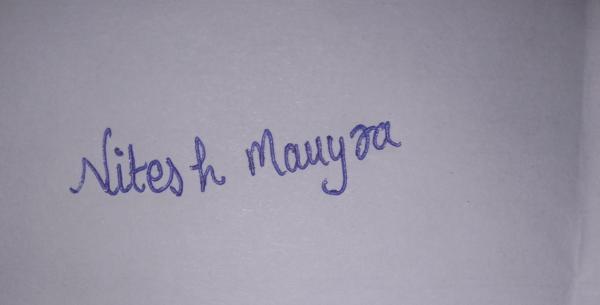 Nitesh Mauyra